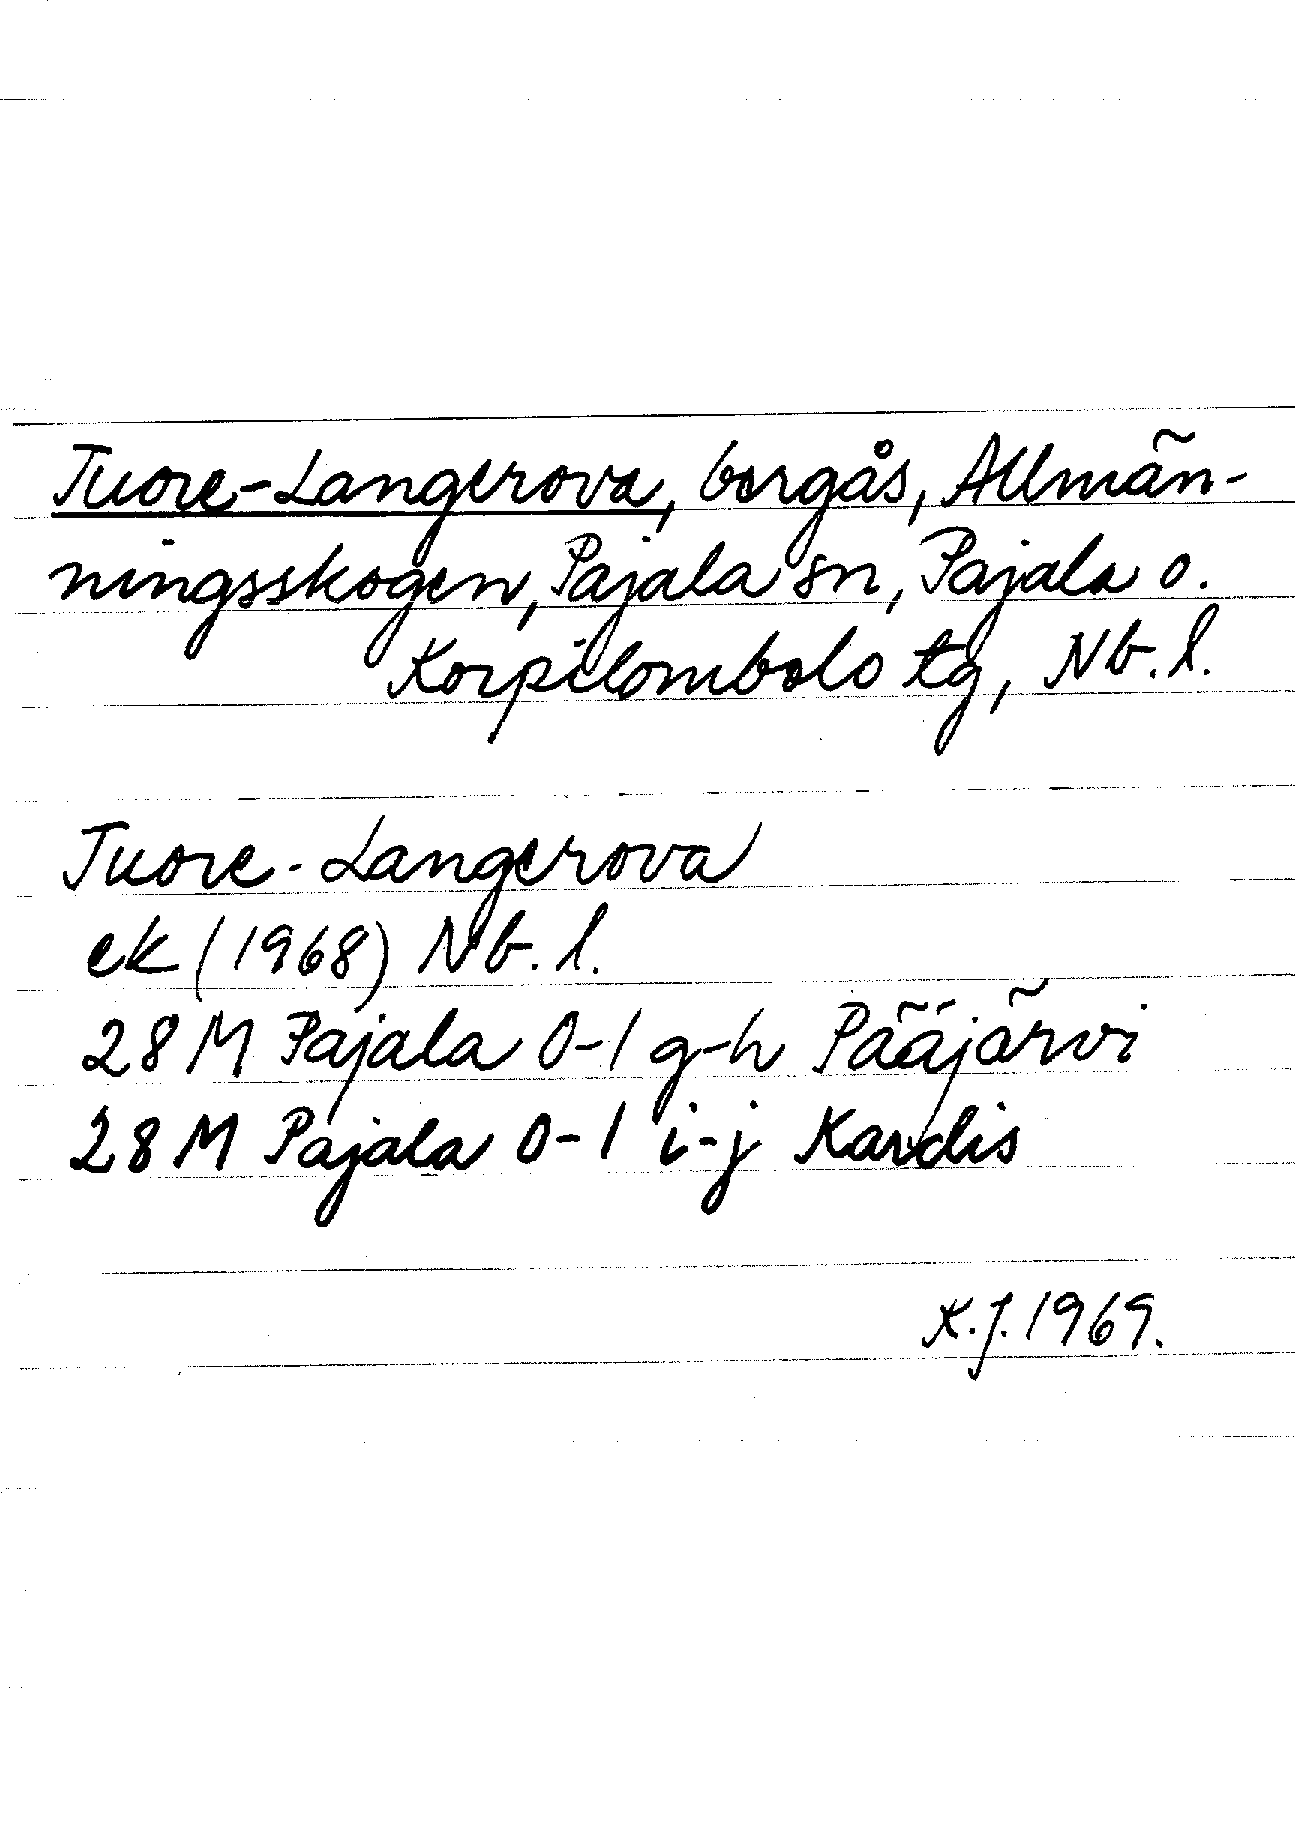 Tuore-Langerova, bergås, Allmän-
ningsskogen, Pajala sn, Pajala o.
Korpilombolo tg, Nb. l.
Tuore-Langerova
ek (1968) Nb. l.
28 M Pajala 0-1 g-h Pääjärvi
28 M Pajala 0-1 i-j Kardis
K.J. 1969.